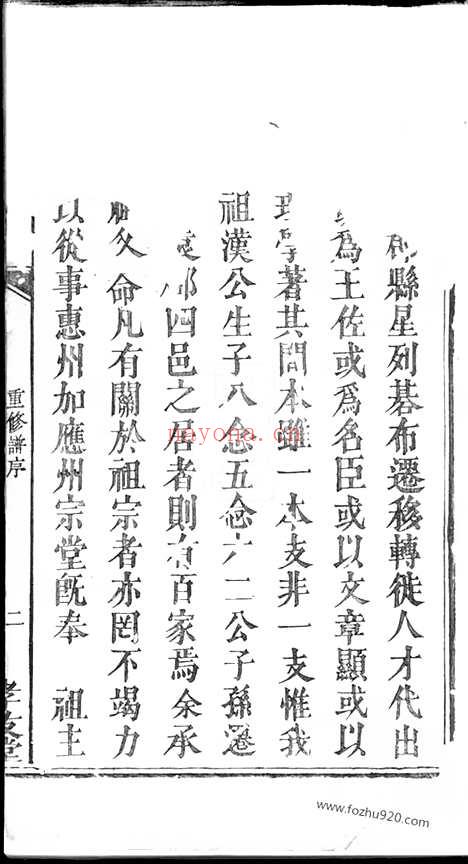 縣星列碁布遷移轉徙人才代出
為王佐或爲名臣或以文章顯或以
著其間本雖一本支非一支惟我
祖漢公生子八念五念六二公子孫遷
四邑之居者則有百家焉余承
父 命凡有關於祖宗者亦罔不竭力
以從事惠州加應州宗堂旣奉 祖主
重修譜序
二
nayona.cn
www.fozhu920.com